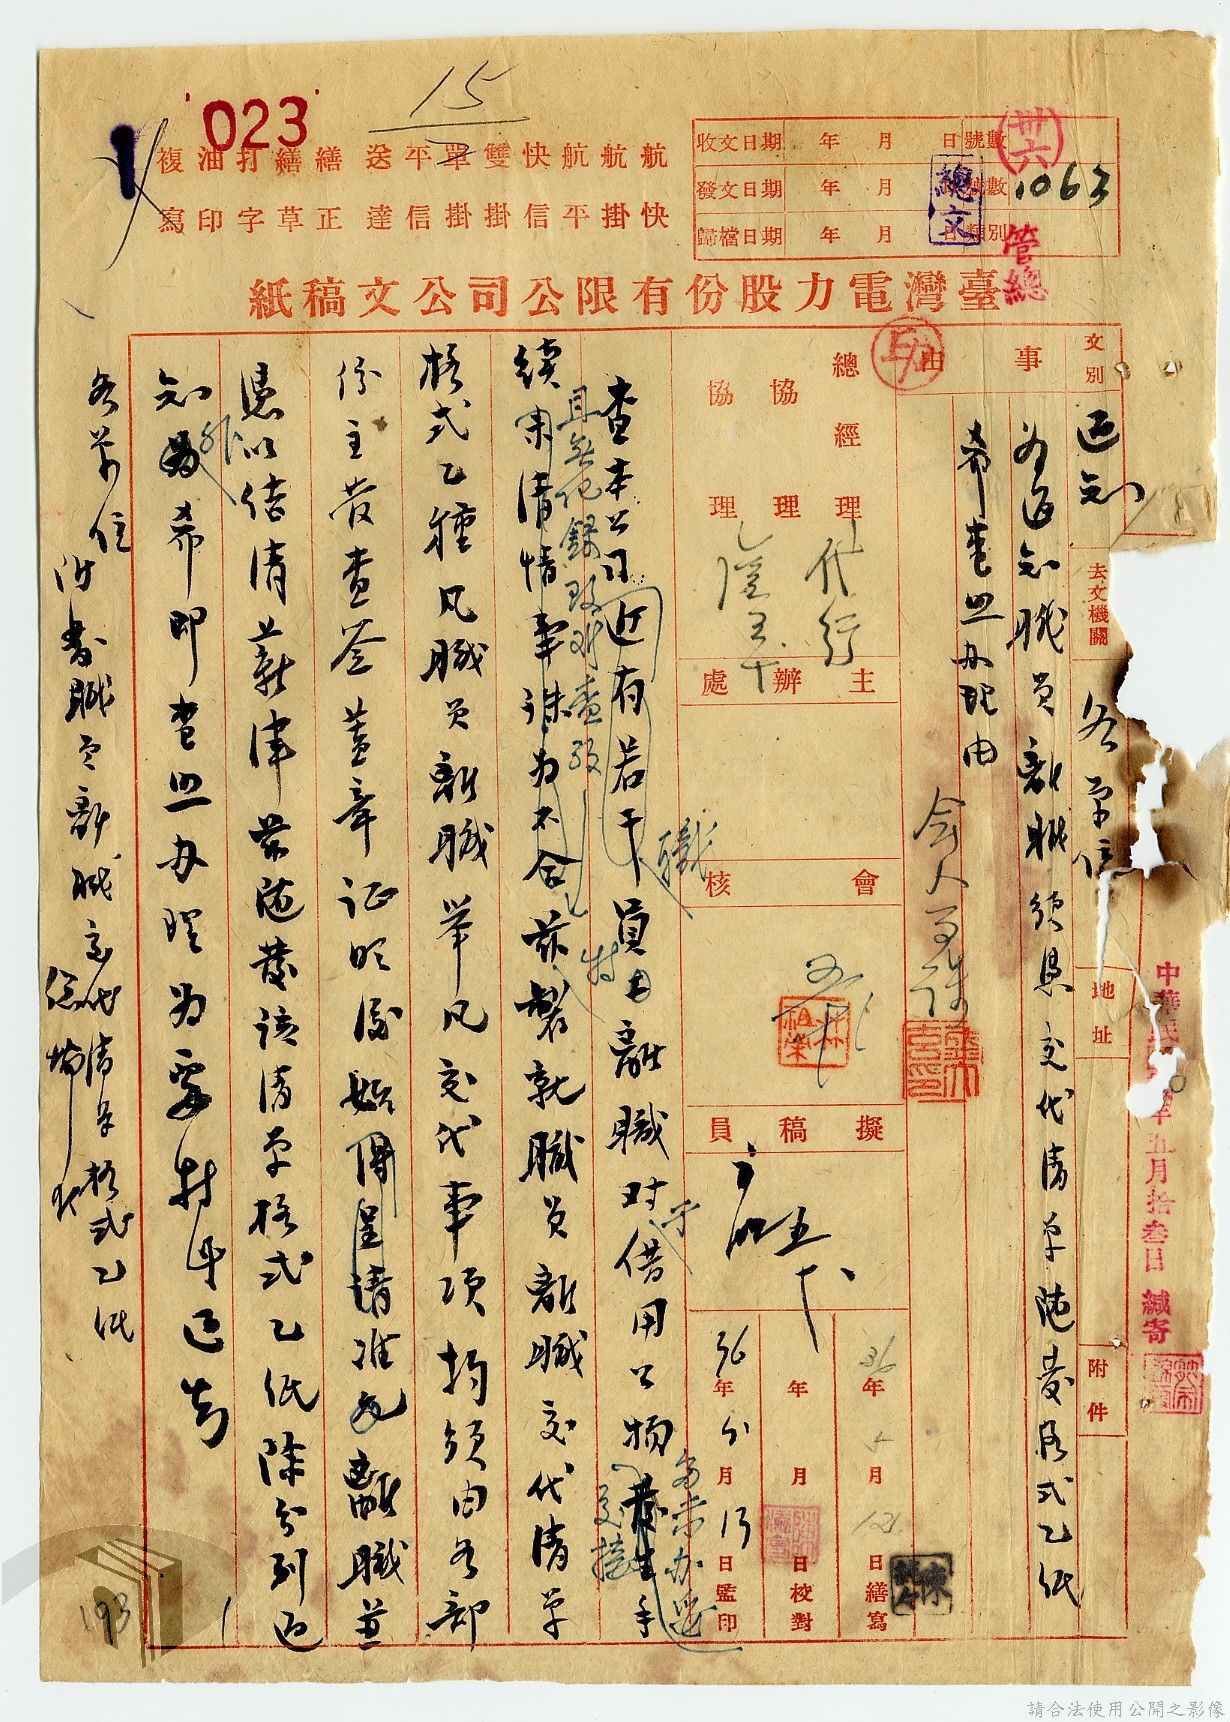 023
15
複寫 油印 打字 繕草 繕正 送達 平信 單掛 雙掛 快信 航平 航掛 航快
收文日期 年 月 日 號數
發文日期 年 月 號數 1063
歸檔日期 年 月 日 類別
卅六
總文
管總
臺灣電力股份有限公司公文稿紙
文別 通知
去文機關 各單位
地址
附件
中華民 年五月拾叁日 緘寄
事由
為通知職員離職須具交代清單隨發格式乙紙
希查照办理由
會人事課
總經理
協理
協理
代行
主辦處
會核
擬稿員
36年5月12日繕寫
年 月 日校對
36年5月13日監印
查本公司近有若干職員离職对于借用公物多未办妥交接手
續未清情事
且無紀錄致難查考
殊为不合茲特製就職員離職交代清單
格式乙種凡職員離職舉凡交代事項均須由各部
份主管查簽蓋章证明後始得呈請准予離職並
憑以结清薪津茲随發該清單格式乙紙除分别通
知外希即查照办理为要特此通知
各單位
附發職员離職交代清單格式乙紙
總 協
193
請合法使用公開之影像